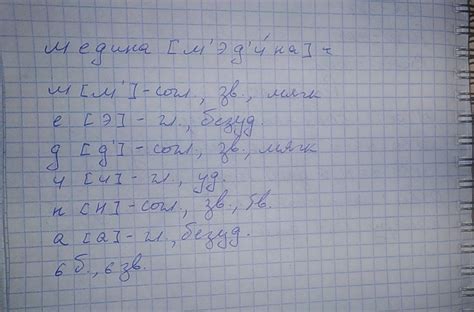 Медина [м'эд'и́на] -
м [м'] - согл., зв., мягк
е [э] - гл., безуд.
д [д'] - согл., зв., мягк
и [и] - гл., уд.
н [н] - согл., зв., тв.
а [а] - гл., безуд.
6 б., 6 зв.